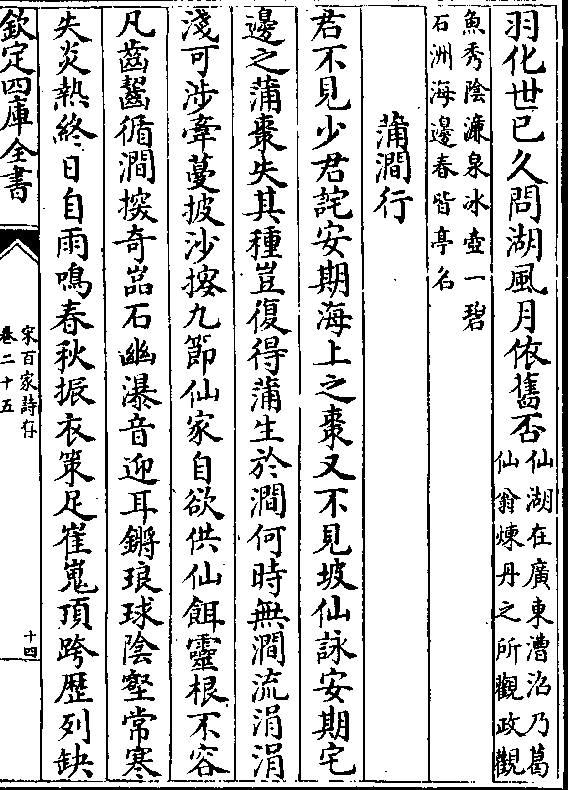 羽化世已久問湖風月依舊否仙湖在廣東漕治乃葛
仙翁煉丹之所觀政觀
魚秀陰濂泉冰壺一碧
石洲海邊春皆亭名
蒲澗行
君不見少君詫安期海上之棗又不見坡仙詠安期宅
邊之蒲棗失其種豈復得蒲生於澗何時無澗流涓涓
淺可涉牽蔓披沙按九節仙家自欲供仙餌靈根不容
凡齒齧循澗㨙奇嵓石幽瀑音迎耳鏘琅球陰壑常寒
失炎熱終日自雨鳴春秋振衣策足崔嵬頂跨歷列缺
欽定四庫全書
宋百家詩存
卷二十五
十四